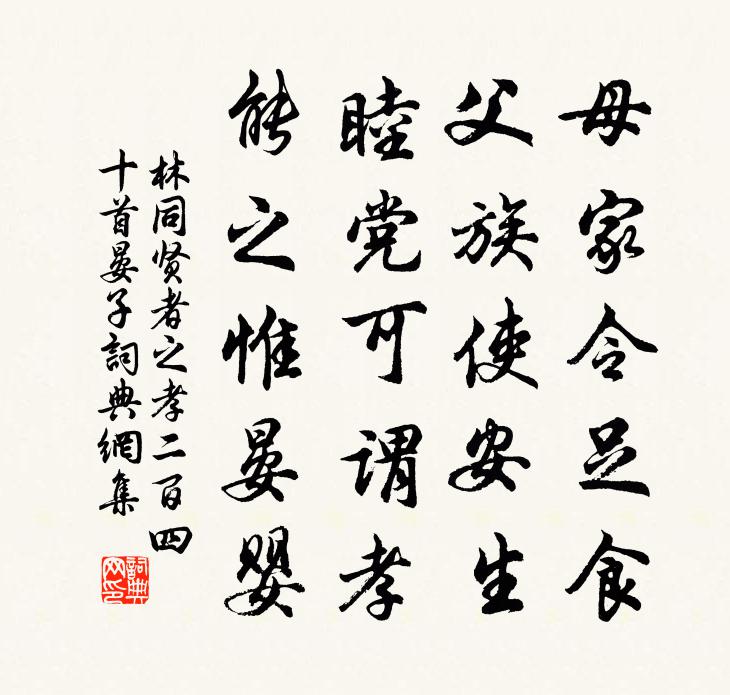 母家令足食
父族使安生
睦党可谓孝
能之惟晏婴
林同贤者之孝二百四
十首晏子詞典網集
詞典
网印